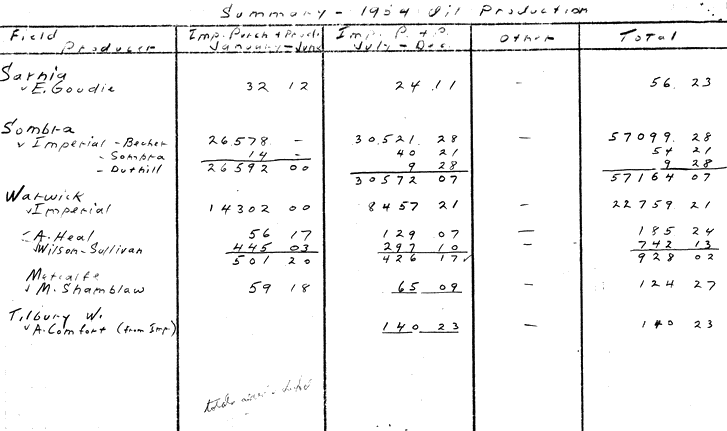 Summary - 1954 Oil Production
Field Producer Imp. Purch + Prod. January - June Imp. P. + P. July - Dec. Other Total
Sarnia
✓ E. Goudie 32 12 24 11 - 56 23
Sombra
✓ Imperial - Becher 26,578 - 30,521 28 - 57099 28
- Sombra 14 - 40 21 54 21
- Duthill 9 28 9 28
26592 00 30572 07 57164 07
Warwick
✓ Imperial 14302 00 8457 21 - 22759 21
✓ A. Heal 56 17 129 07 - 185 24
✓ Wilson-Sullivan 445 03 297 10 - 742 13
501 20 426 17 ✓ 928 02
Metcalfe
✓ M. Shamblaw 59 18 65 09 - 124 27
Tilbury W.
✓ A. Comfort (from Imp) 140 23 - 140 23